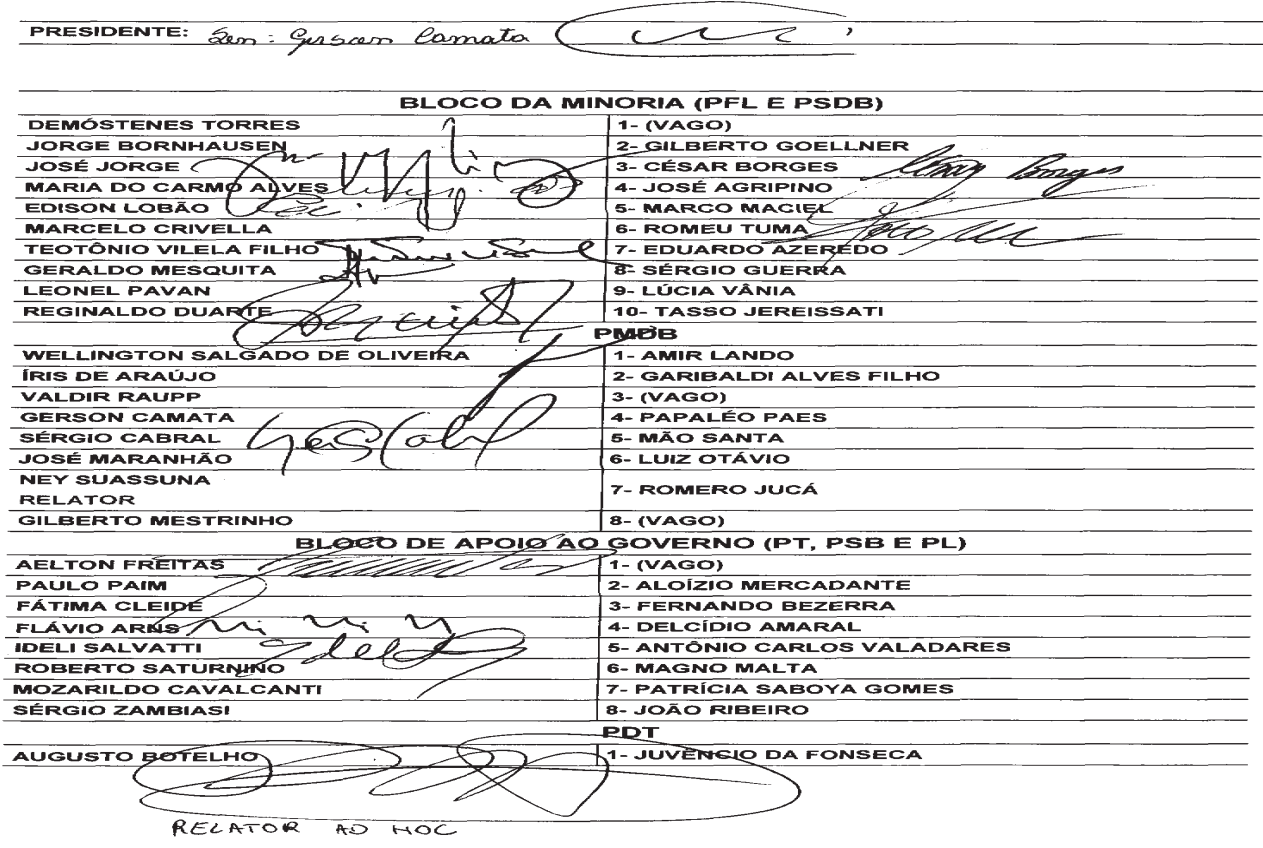 PRESIDENTE: Sen: Gerson Camata
BLOCO DA MINORIA (PFL E PSDB)
DEMÓSTENES TORRES 1- (VAGO)
JORGE BORNHAUSEN 2- GILBERTO GOELLNER
JOSÉ JORGE 3- CÉSAR BORGES
MARIA DO CARMO ALVES 4- JOSÉ AGRIPINO
EDISON LOBÃO 5- MARCO MACIEL
MARCELO CRIVELLA 6- ROMEU TUMA
TEOTÔNIO VILELA FILHO 7- EDUARDO AZEREDO
GERALDO MESQUITA 8- SÉRGIO GUERRA
LEONEL PAVAN 9- LÚCIA VÂNIA
REGINALDO DUARTE 10- TASSO JEREISSATI
PMDB
WELLINGTON SALGADO DE OLIVEIRA 1- AMIR LANDO
ÍRIS DE ARAÚJO 2- GARIBALDI ALVES FILHO
VALDIR RAUPP 3- (VAGO)
GERSON CAMATA 4- PAPALÉO PAES
SÉRGIO CABRAL 5- MÃO SANTA
JOSÉ MARANHÃO 6- LUIZ OTÁVIO
NEY SUASSUNA
RELATOR 7- ROMERO JUCÁ
GILBERTO MESTRINHO 8- (VAGO)
BLOCO DE APOIO AO GOVERNO (PT, PSB E PL)
AELTON FREITAS 1- (VAGO)
PAULO PAIM 2- ALOÍZIO MERCADANTE
FÁTIMA CLEIDE 3- FERNANDO BEZERRA
FLÁVIO ARNS 4- DELCÍDIO AMARAL
IDELI SALVATTI 5- ANTÔNIO CARLOS VALADARES
ROBERTO SATURNINO 6- MAGNO MALTA
MOZARILDO CAVALCANTI 7- PATRÍCIA SABOYA GOMES
SÉRGIO ZAMBIASI 8- JOÃO RIBEIRO
PDT
AUGUSTO BOTELHO 1- JUVÊNCIO DA FONSECA
RELATOR AD HOC